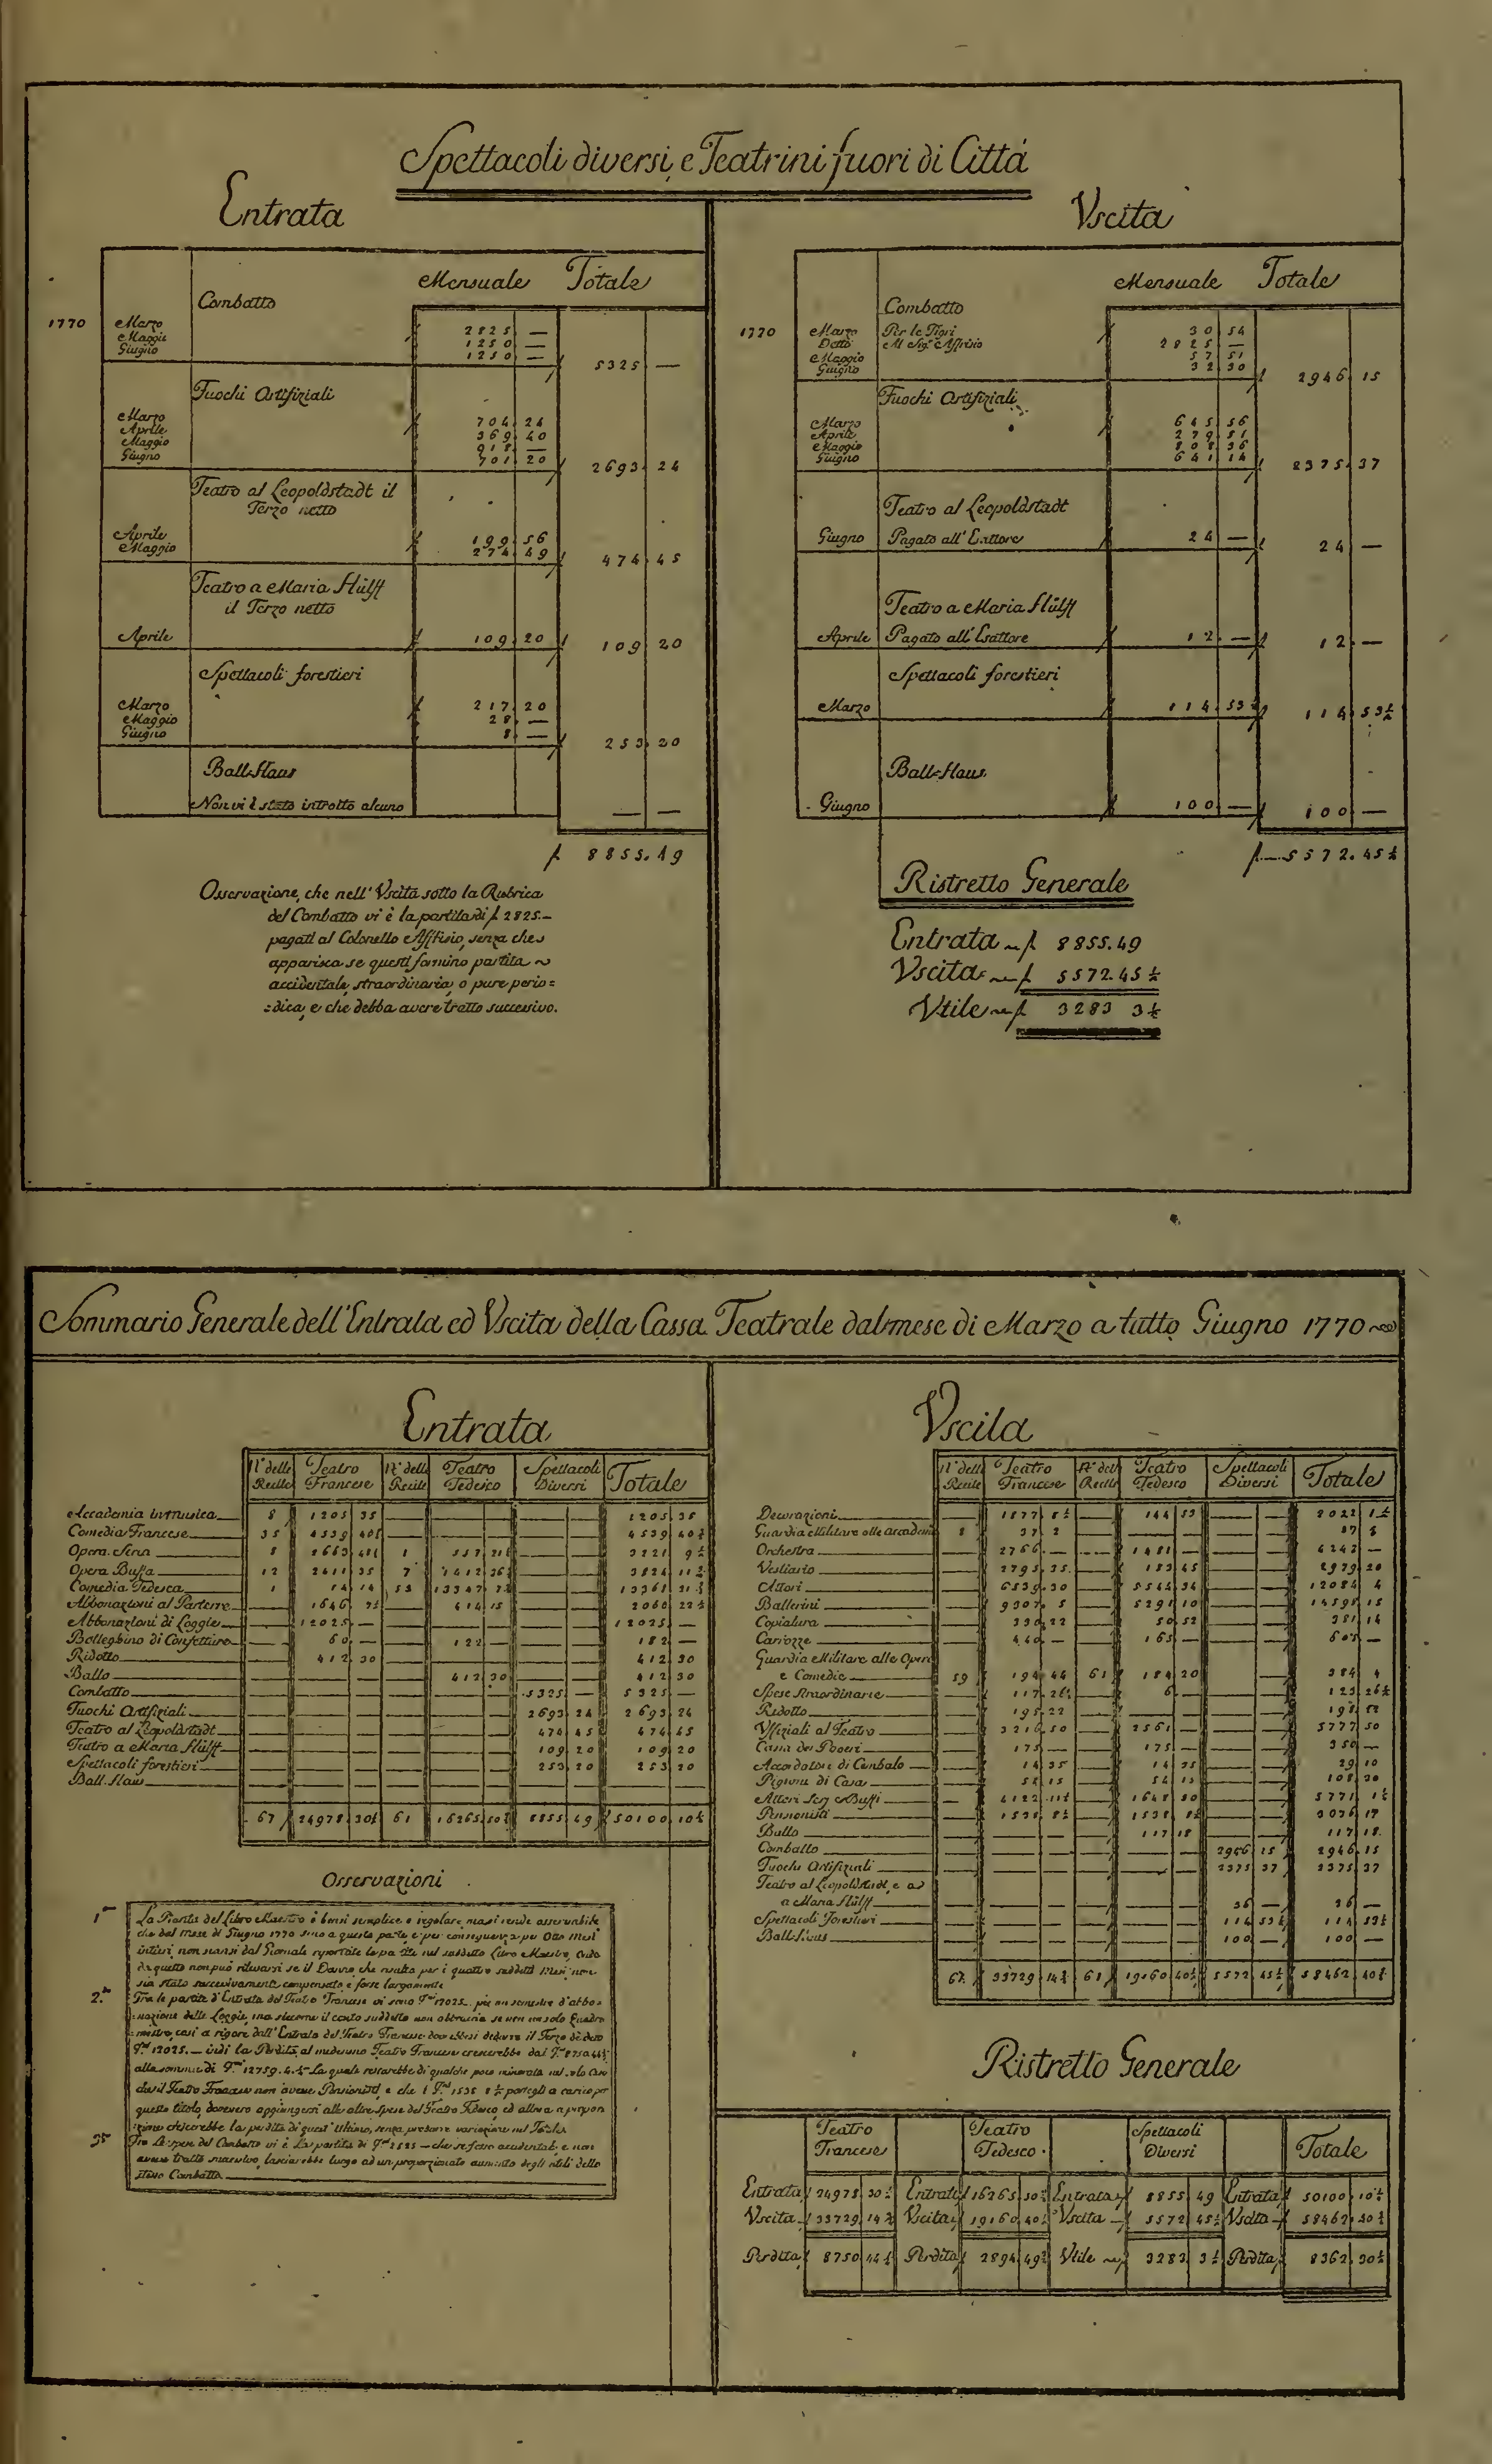 Spettacoli diversi, e Teatrini fuori di Cittá
Entrata
Mensuale Totale
Combatto
1770 Marzo 2825 —
Maggio 1250 —
Giugno 1250 —
5325 —
Fuochi Artifiziali
Marzo 704 24
Aprile 369 40
Maggio 918 —
Giugno 701 20
2693 24
Teatro al Leopoldstadt il
Terzo netto
Aprile 199 56
Maggio 274 49
474 45
Teatro a Maria Hülff
il Terzo netto
Aprile 109 20 109 20
Spettacoli forestieri
Marzo 217 20
Maggio 28 —
Giugno 8 —
253 20
Ball-Haus
Non vi è stato introito alcuno — —
f 8855.49
Osservazione, che nell' Vscita sotto la Rubrica
del Combatto vi è la partita di f 2825.—
pagati al Colonello Afflisio, senza che
apparisca se questi formino partita
accidentale, straordinaria, o pure perio=
=dica, e che debba avere tratto successivo.
Vscita
Mensuale Totale
Combatto
1770 Marzo Per le Tigri 30 54
Detto Al Sigr Afflisio 2825 —
Maggio 57 51
Giugno 32 30
2946 15
Fuochi Artifiziali
Marzo 645 56
Aprile 279 51
Maggio 808 36
Giugno 641 14
2375 37
Teatro al Leopoldstadt
Giugno Pagato all' Esattore 24 — 24 —
Teatro a Maria Hülff
Aprile Pagato all' Esattore 12 — 12 —
Spettacoli forestieri
Marzo 114 53½ 114 53½
Ball-Haus
Giugno 100 — 100 —
f 5572.45½
Ristretto Generale
Entrata f 8855.49
Vscita f 5572.45½
Vtile f 3283 3½
Sommario Generale dell' Entrata ed Vscita della Cassa Teatrale dal mese di Marzo a tutto Giugno 1770
Entrata
N.° delle Recite Teatro Francese N.° delle Recite Teatro Tedesco Spettacoli Diversi Totale
Accademia in musica 8 1205 35 — — — 1205 35
Comedia Francese 35 4539 40½ — — — 4539 40½
Opera Seria 8 2663 48½ 1 557 21 3221 9½
Opera Buffa 12 2411 35 7 1412 36 3824 11½
Comedia Tedesca 1 14 14 53 13347 7 13361 21
Abbonazioni al Parterre 1646 7½ 414 15 2060 22½
Abbonazioni di Loggie 12025 — 12025 —
Botteghino di Confetture 60 — 122 — 182 —
Ridotto 412 30 412 30
Ballo 412 30 412 30
Combatto 5325 — 5325 —
Fuochi Artifiziali 2693 24 2693 24
Teatro al Leopoldstadt 474 45 474 45
Teatro a Maria Hülff 109 20 109 20
Spettacoli forestieri 253 20 253 20
Ball-Haus
67 24978 30½ 61 16265 50 8855 49 50100 10½
Osservazioni
1° La Pianta del Libro Maestro è bensi semplice, e regolare, ma si rende osservabile
che dal Mese di Giugno 1770 sino a questa parte e per conseguenza per Otto Mesi
intieri, non siansi dal Giornale riportate le partite nel suddetto Libro Maestro, onde
da questo non può rilevarsi se il Danno che risulta per i quattro suddetti Mesi, non
sia stato successivamente compensato, e forse largamente
2° Tra le partite d'Entrata del Teatro Francese vi sono f 12025 per un semestre d'abbo=
=nazione delle Loggie, ma siccome il conto suddetto non abbraccia se non un solo Quadri=
=mestre, cosi a rigore dall' Entrata del Teatro Francese dovrebbesi dedurre il Terzo di detti
f 12025.— indi la Perdita al medesimo Teatro Francese crescerebbe dal f 8750.44½
alla somma di f 12759.4.½ La quale resterebbe di qualche poco minorata nel solo caso
che il Teatro Francese non avesse Pensionisti, e che i f 1538 8½ portegli a carico per
questo titolo, dovessero aggiungersi alle altre Spese del Teatro Tedesco, ed allora a propor
zione crescerebbe la perdita di quest' ultimo, senza portare variazione nel Totale
3° Tra le spese del Combatto vi è la partita di f 2825 — che se fosse accidentale, e non
avesse tratto successivo, lasciarebbe luogo ad un proporzionato aumento degli utili dello
stesso Combatto
Vscita
N.° delle Recite Teatro Francese N.° delle Recite Teatro Tedesco Spettacoli Diversi Totale
Decorazioni 1877 8½ 144 53 2022 1½
Guardia Militare alle Accademie 8 37 2 37 2
Orchestra 2766 — 1481 — 4247 —
Vestiario 2795 35 183 45 2979 20
Attori 6539 30 5544 34 12084 4
Ballerini 9307 5 5291 10 14598 15
Copiatura 330 22 50 52 381 14
Carrozze 440 — 165 — 605 —
Guardia Militare alle Opere
e Comedie 59 194 44 61 184 20 384 4
Spese Straordinarie 117 26½ 6 — 123 26½
Ridotto 195 22
Vffiziali al Teatro 3216 50 2561 — 5777 50
Cassa de Poveri 175 — 175 — 350 —
Accordatore di Cembalo 14 35 14 35 29 10
Pigione di Casa 54 15 54 15 108 30
Attori Serj e Buffi 4122 11½ 1648 50 5771 1½
Pensionisti 1538 8½ 1538 8½ 3076 17
Ballo 117 18 117 18
Combatto 2946 15 2946 15
Fuochi Artifiziali 2375 37 2375 37
Teatro al Leopoldstadt, e a
a Maria Hülff 36 — 36 —
Spettacoli Forestieri 114 53½ 114 53½
Ball-Haus 100 — 100 —
67 33729 14¾ 61 19160 40½ 5572 45½ 58462 40¾
Ristretto Generale
Teatro Francese Teatro Tedesco Spettacoli Diversi Totale
Entrata f 24978 30½ Entrata f 16265 50¾ Entrata f 8855 49 Entrata f 50100 10½
Vscita f 33729 14¾ Vscita f 19160 40½ Vscita f 5572 45½ Vscita f 58462 40¾
Perdita f 8750 44½ Perdita f 2894 49¾ Vtile f 3283 3½ Perdita f 8362 30½